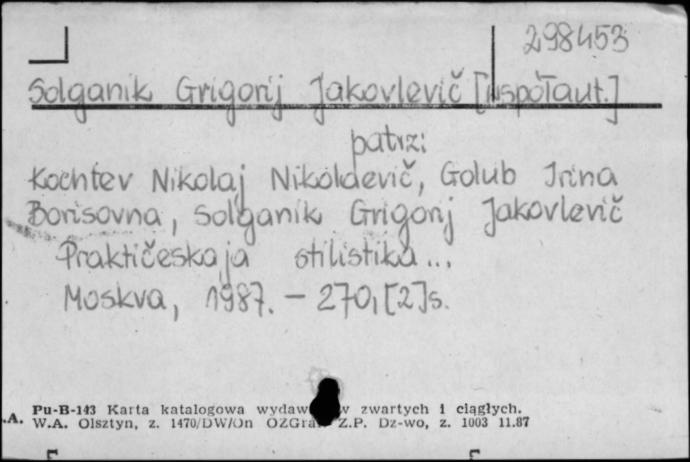 298453
Solganik Grigorij Jakovlevič [współaut.]
patrz:
Kochtev Nikolaj Nikolaevič, Golub Irina
Borisovna, Solganik Grigorij Jakovlevič
Praktičeskaja stilistika...
Moskva, 1987. – 270,[2]s.
Pu-B-143 Karta katalogowa zwartych i ciągłych.
.A. W.A. Olsztyn, z. 1470/DW/On Z.P. Dz-wo, z. 1003 11.87